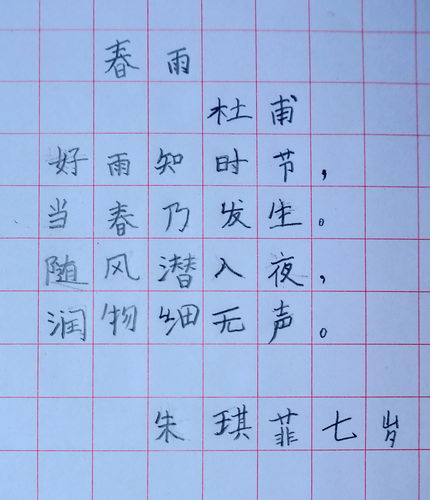 春雨
杜甫
好雨知时节，
当春乃发生。
随风潜入夜，
润物细无声。
朱琪菲七岁